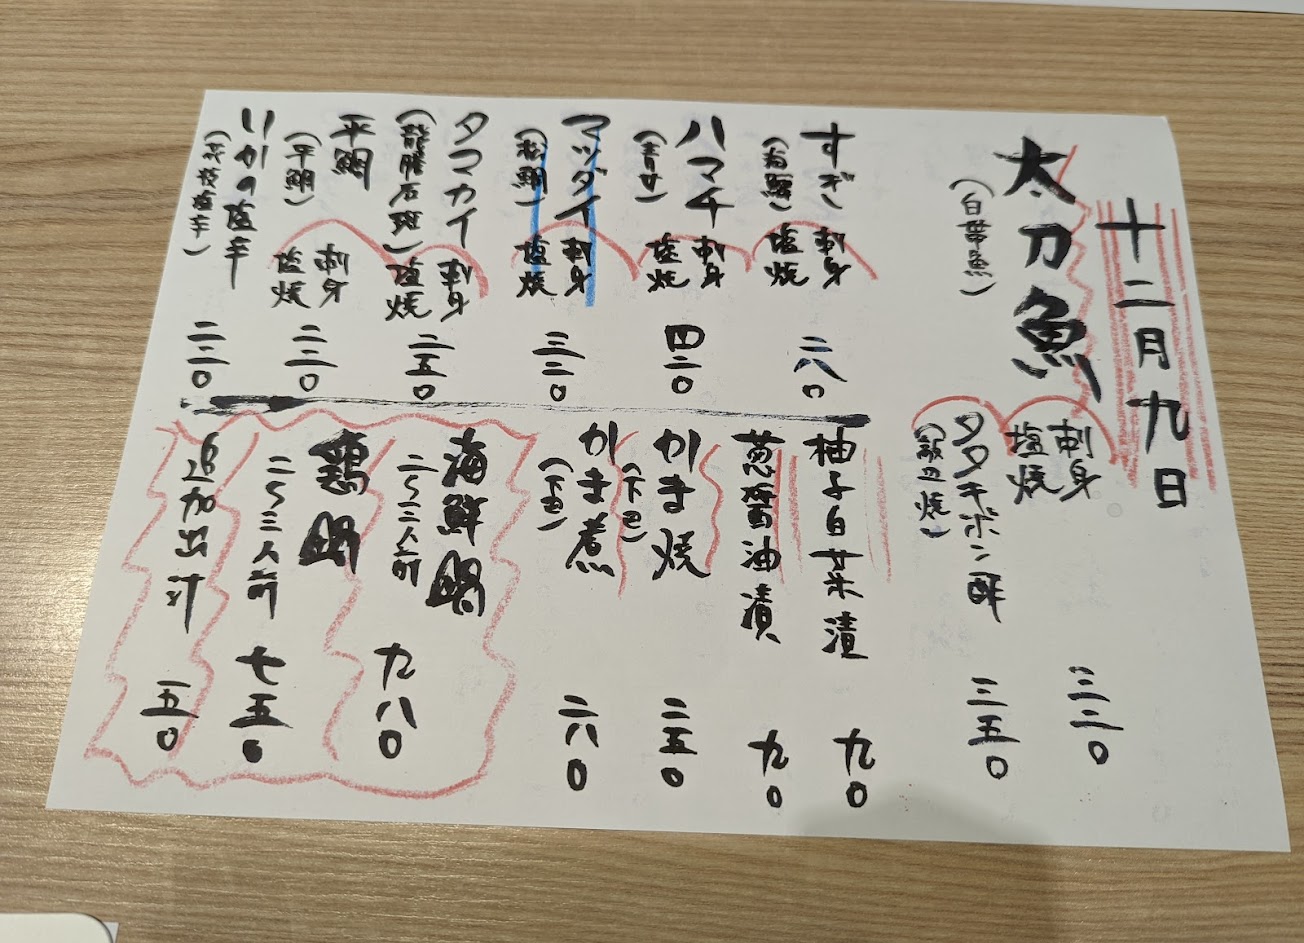 十二月九日
太刀魚
(白帯魚)
刺身
塩焼
三二〇
タタキポン酢
三五〇
すぎ
刺身
塩焼
二八〇
ハマチ
(青甘)
刺身
塩焼
四二〇
マツダイ
(松鯛)
刺身
塩焼
三二〇
タマカイ
(龍膽石斑)
刺身
塩焼
二五〇
平鯛
(平鯛)
刺身
塩焼
二二〇
いかの塩辛
二二〇
柚子白菜漬
九〇
葱醤油漬
九〇
かま焼
(下巴)
二五〇
かま煮
(下巴)
二八〇
海鮮鍋
二〜三人前
九八〇
鶏鍋
二〜三人前
七五〇
追加出汁
一五〇